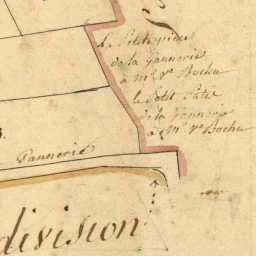 la Petite pièce
de la Vannerie
à Mr. Ve Bochu
le Petit Patis
de la Vannerie
à Mr. Ve Bochu
Vannerie
division